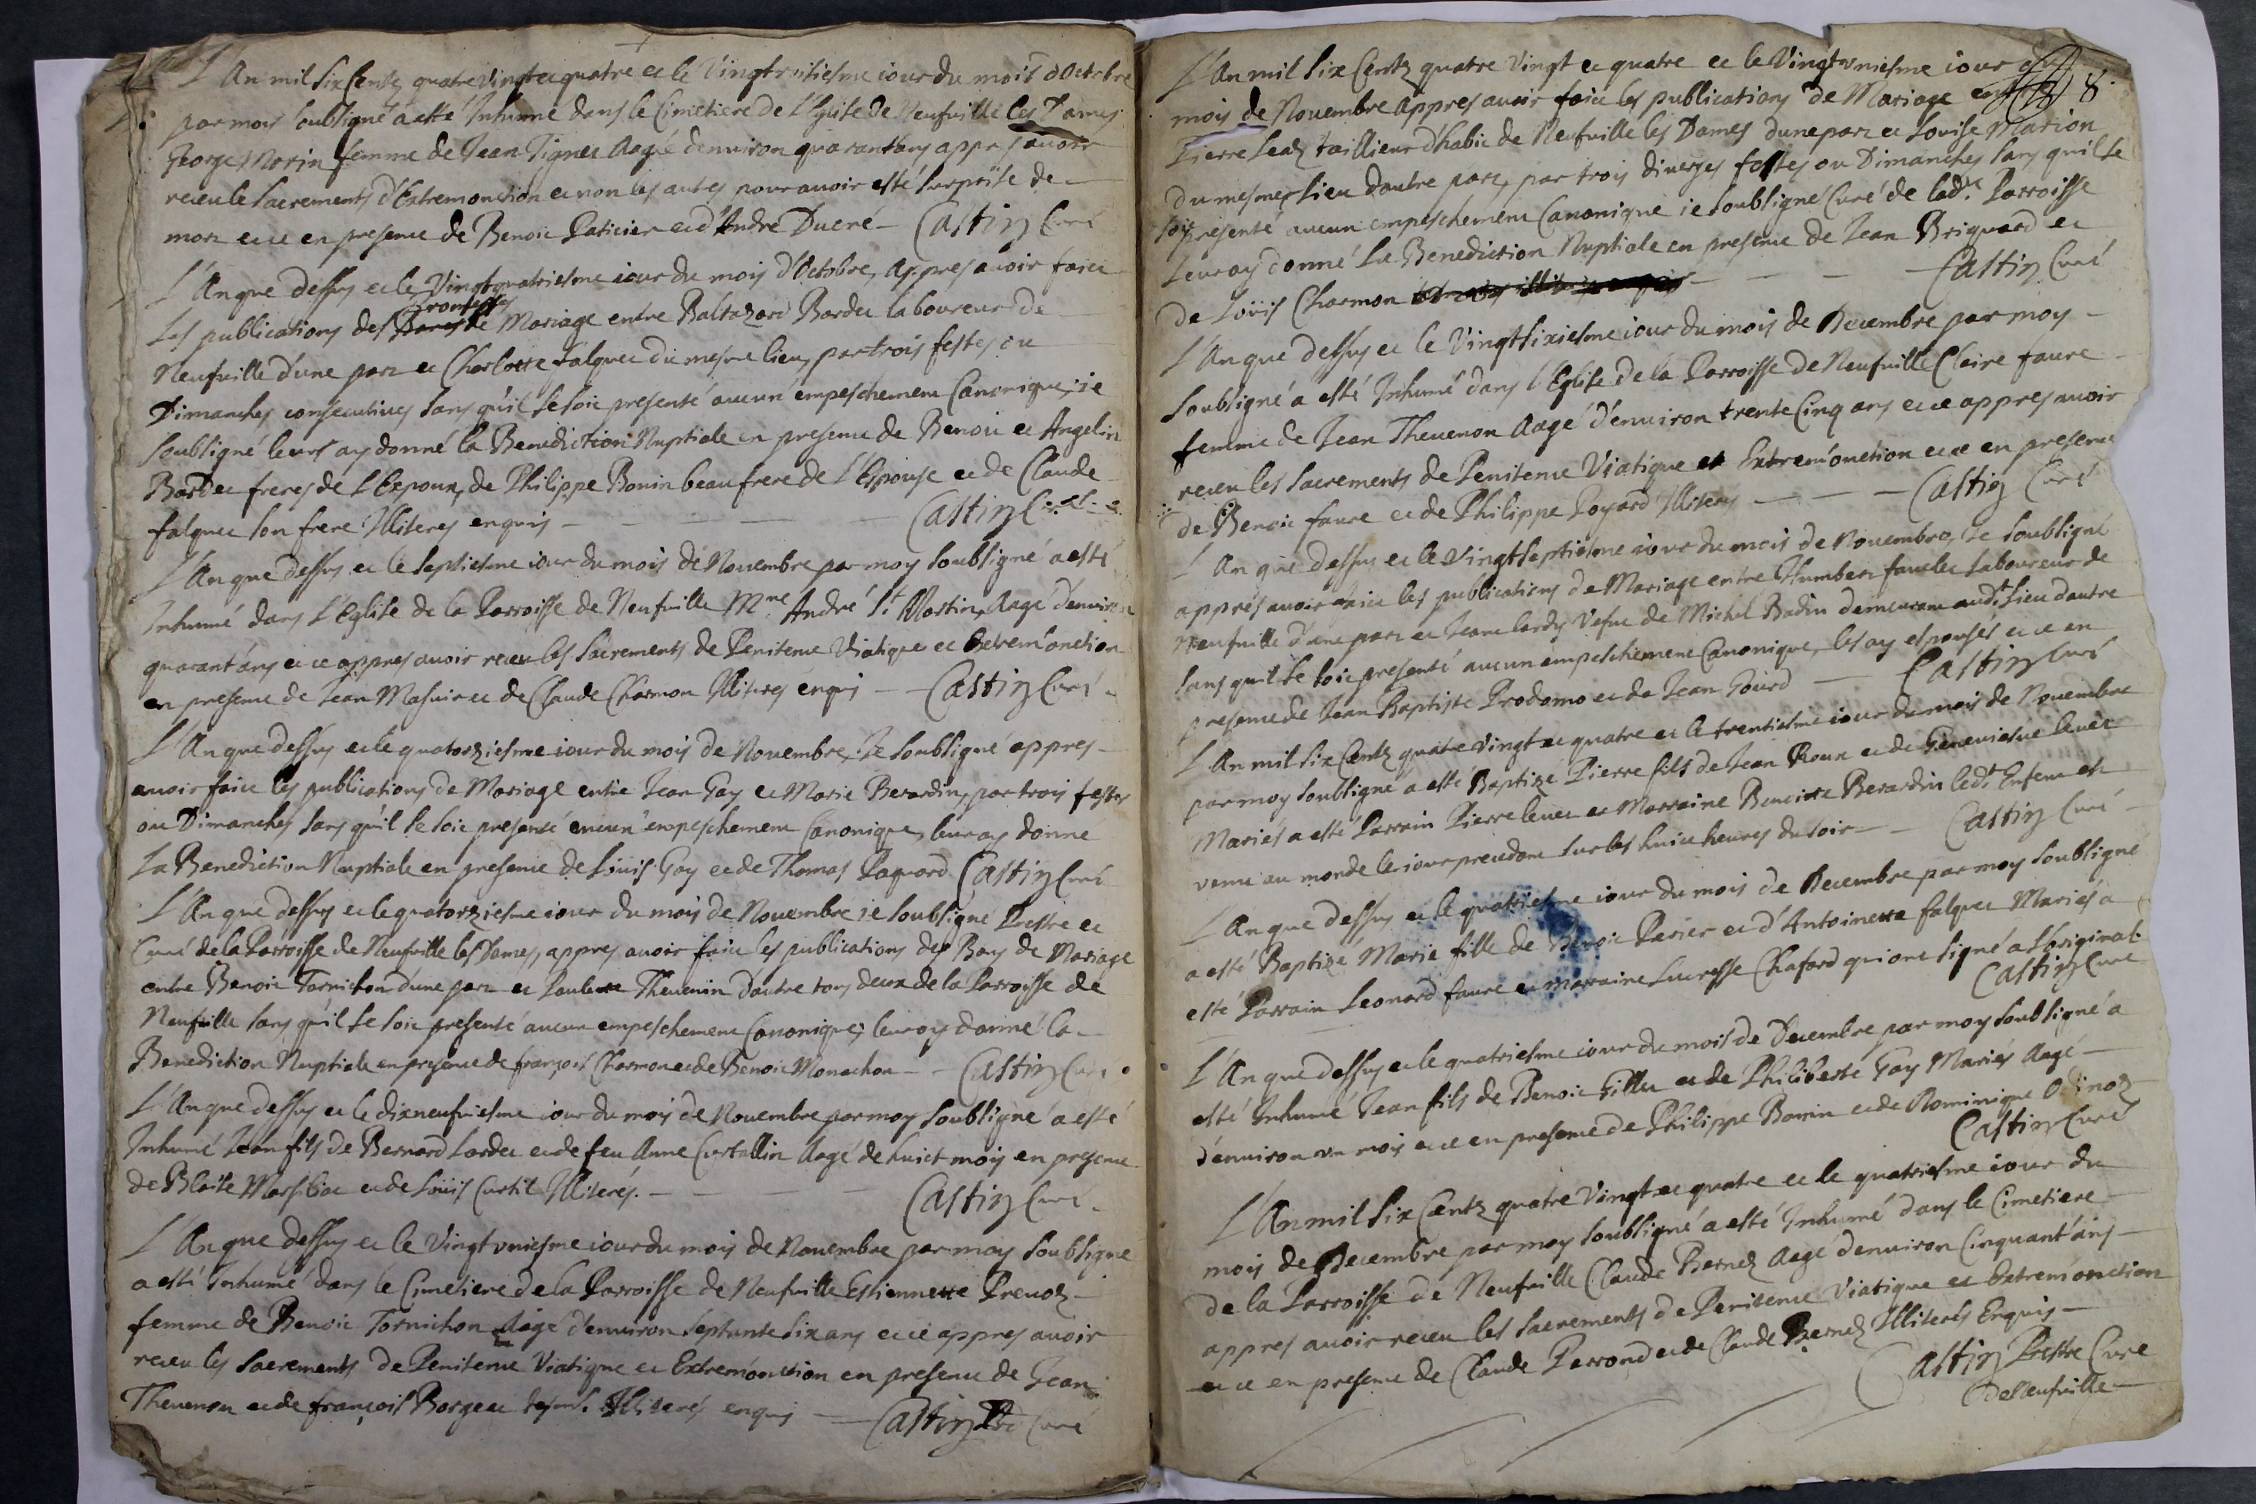 L'An mil six Centz quatre vingt et quatre et le Vingtroisiesme iour du mois d'Octobre
par moy soubsigné a esté Inhumé dans le Cimetiere de l'Eglise de Neufville les Dames
George Morin femme de Jean Tignet Aagée denviron quarant'ans appres avoir
receu le Sacrements d'Extremonction et non les autres pour avoir esté surprise de
mort et ce en presence de Benoit Paticier et d'André Ducré - Castin Curé
L'An que dessus et le Vingtquatriesme iour du mois d'Octobre, appres avoir faict
Les publications des promesses de Mariage entre Baltazard Bardet laboureur de
Neufville d'une part et Charlotte falquet du mesme lieu, par trois festes ou
Dimanches consecutives sans qu'il se soit presenté aucun empeschement Canonique, ie
soubsigné leurs ay donné la Benediction Nuptiale en presence de Benoit et Angelin
Bardet freres de l'Expoux, de Philippe Bonin beau frere de L'Espouse et de Claude
falquet son frere Illiteres enquis - Castin Curé
L'An que dessus et le septiesme iour du mois de Novembre par moy soubsigné a esté
Inhumé dans L'Eglise de la Parroisse de Neufville Mre André St Martin, Aagé d'environ
quarant'ans et ce appres avoir receu les Sacrements de Penitence Viatique et Extrem'onction
en presence de Jean Masuir et de Claude Charmon Illiteres enquis - Castin Curé -
L'An que dessus et le quatorziesme iour du mois de Novembre, Je soubsigné appres
avoir faict les publications de Mariage entre Jean Gay et Marie Berardin, par trois festes
ou Dimanches sans qu'il se soit presenté aucun empeschement Canonique, leur ay donné
La Benediction Nuptiale en presence de Louis Gay et de Thomas Paquard Castin Curé
L'An que dessus et le quatorziesme iour du mois de Novembre ie soubsigné Prestre et
Curé de la Parroisse de Neufville les Dames, appres avoir faict les publications des Bans de Mariage
entre Benoit Tornichon d'une part et Paulette Thevenin d'autre tous deux de la Parroisse de
Neufville sans qu'il se soit presenté aucun empeschement Canonique, leur ay donné la
Benediction Nuptiale en presence de françois Charmon et de Benoit Monachon - - Castin Curé
L'An que dessus et le dixneufviesme iour du mois de Novembre par moy soubsigné a esté
Inhumé Jean fils de Bernard Lardet et de feu Anne Curtallin Aagé de huict mois en presence
de Blaise Marsiliac et de Louis Curtil Illiterés. - Castin Curé
L'An que dessus et le Vingtvniesme iour du mois de Novembre par moy soubsigné
a esté Inhumé dans le Cimetiere de la Parroisse de Neufville Estiennette Prenotz
femme de Benoit Tornichon Aagé d'environ septante six ans et ce appres avoir
receu les Sacrements de Penitence Viatique et Extrem'onction en presence de Jean
Thevenon et de françois Borgeat Illiterés enquis - Castin Pre Curé
L'An mil six Centz quatre vingt et quatre et le Vingtvniesme iour du 8.
mois de Novembre appres avoir faict les publications de Mariage entre
Pierre Sealz taillieur d'habit de Neufville les Dames dune part et Louise Marion
du mesme Lieu d'autre part, par trois diverses festes ou Dimanches sans qu'il se
soit presenté aucun empeschement Canonique ie soubsigné Curé de lade. Parroisse
Leur ay donné La Benediction Nuptiale en presence de Jean Briquard et
de Louis Charmon - Castin Curé
L'An que dessus et le Vingtsixiesme iour du mois de Decembre par moy
soubsigné a esté Inhumé dans l'Eglise de la Parroisse de Neufville Claire faure
femme de Jean Thevenon Aagé d'environ trente Cinq ans et ce appres avoir
receu les Sacrements de Penitence Viatique et Extrem'onction et ce en presence
de Benoit faure et de Philippe Poyard Illiteres - Castin Curé
L'An que dessus et le Vingtseptiesme iour du mois de Novembre, Je soubsigné
appres avoir faict les publications de Mariage entre Humbert Laboureur de
Neufville d'une part et Jeane Lardy Vefue de Michel Badin demeurant audt. Lieu dautre
sans qu'il se soit presenté aucun empeschement Canonique, les ay espousés et ce en
presence de Jean Baptiste Prodomo et de Jean Goiard - Castin Curé
L'An mil six Centz quatre vingt et quatre et le trentiesme iour du mois de Novembre
par moy soubsigné a esté Baptizé Pierre fils de Jean Roux et de Genevieive
Mariés a esté Parrain Pierre et Marraine Benoitte Berardin ledt. Enfent est
venu au monde le iour precedent sur les huict heures du soir - Castin Curé
L'An que dessus et le quatriesme iour du mois de Decembre par moy soubsigné
a esté Baptizé Marie fille de Benoit Pasier et d'Antoinette falquet Mariés a
esté Parrain Leonard faure et marraine Lucresse Chafard qui ont signé a L'original
Castin Curé
L'An que dessus et le quatriesme iour du mois de Decembre par moy soubsigné a
esté Inhumé Jean fils de Benoit Gillet et de Philiberte Gay Mariés Aagé
d'environ un mois et ce en presence de Philippe Bonin et de Dominique
Castin Curé
L'An mil six Centz quatre vingt et quatre et le quatriesme iour du
mois de Decembre par moy soubsigné a esté Inhumé dans le Cimetiere
de la Parroisse de Neufville Claude Bernet Aagé d'environ Cinquant'ans
appres avoir receu les Sacrements de Penitence Viatique et Extrem'onction
et ce en presence de Claude Perrond et de Claude Bernet Illiterés Enquis
Castin Prestre Curé
de Neufville